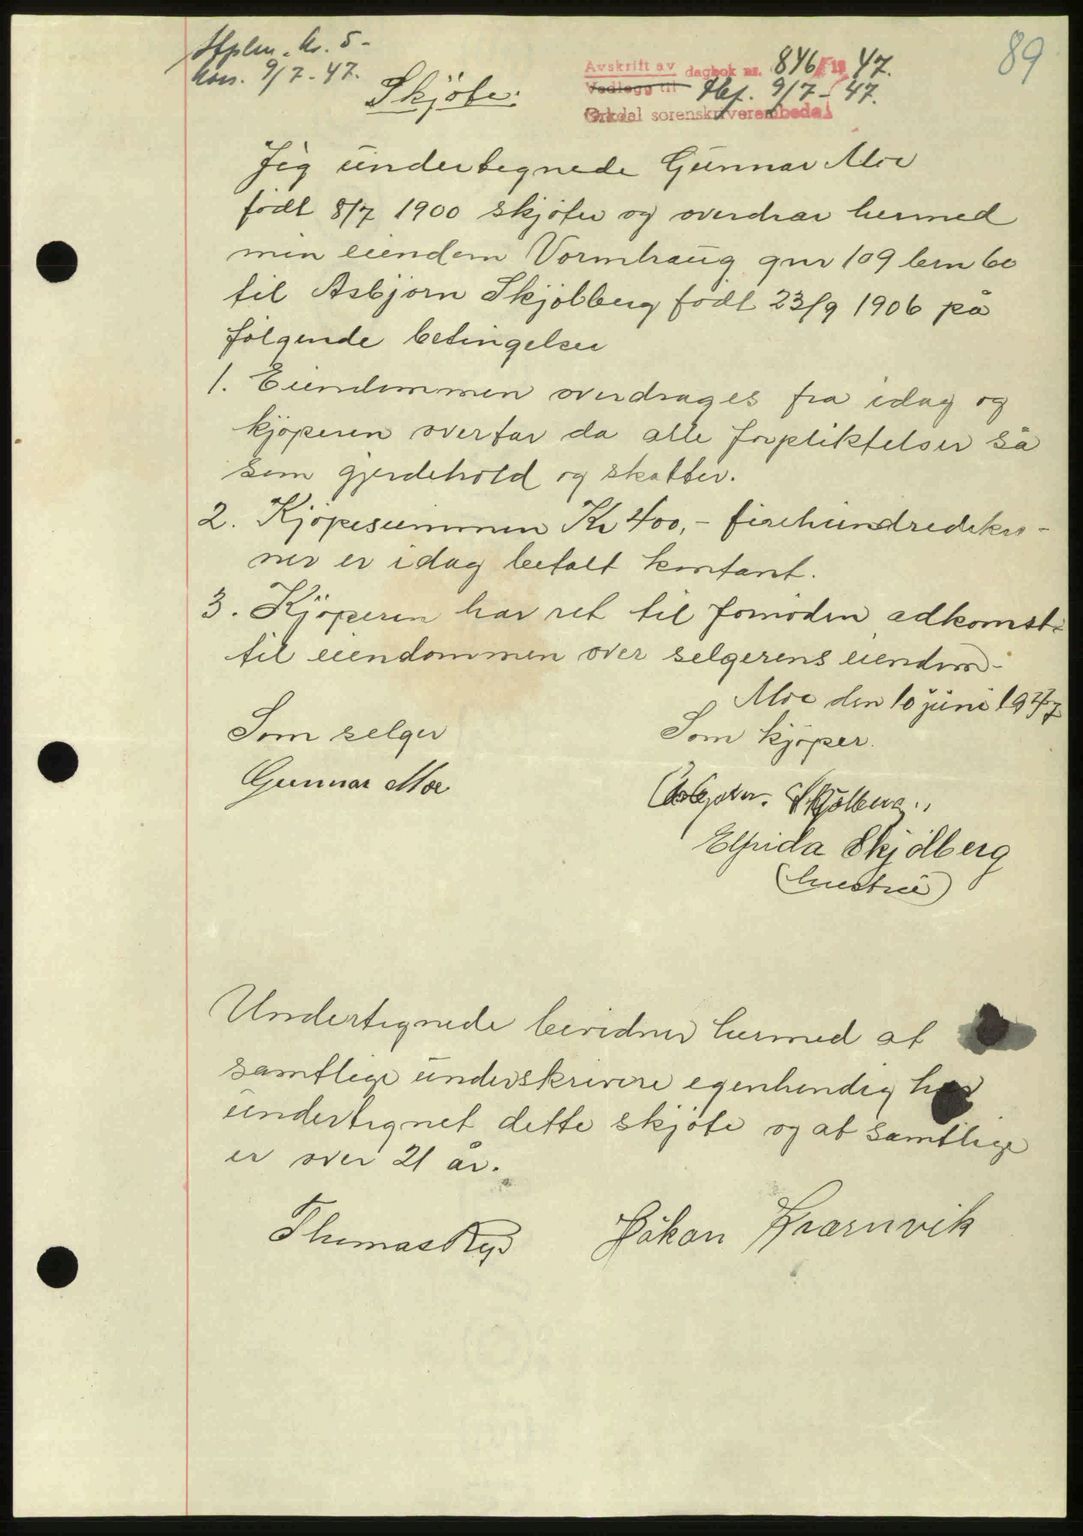 Stplm. kr. 5-
kas. 9/7-47.
89
Avskrift av dagbok nr. 846/19 47.
Vedlegg til tbf. 9/7-47.
Orkdal sorenskriverembede
Skjöte:
Jeg undertegnede Gunnar Moe
födt 8/7 1900 skjöter og overdrar hermed
min eiendom Vormhaug gnr 109 brn 60
til Asbjörn Skjölberg födt 23/9 1906 på
fölgende betingelser
1. Eiendommen overdrages fra idag og
kjöperen overtar da alle forpliktelser så
som gjerdehold og skatter.
2. Kjöpesummen Kr 400,- firehundredekro-
ner er idag betalt kontant.
3. Kjöperen har ret til fornöden adkomst
til eiendommen over selgerens eiendom-
Moe den 10 juni 1947
Som selger
Som kjöper.
Gunnar Moe
Asbjörn. Skjölberg.
Elfrida Skjölberg
(hustru)
Undertegnede bevidner hermed at
samtlige underskrivere egenhendig har
undertegnet dette skjöte og at samtlige
er over 21 år.
Thomas Ry
Håkon Kvernvik